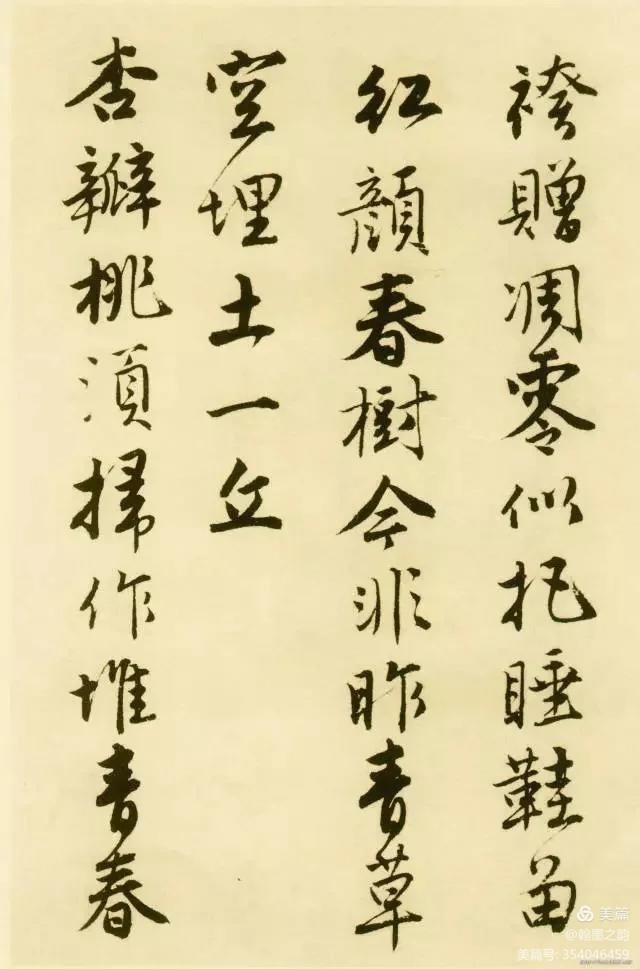 袴贈凋零似把睡鞋留
紅顏春樹今非昨青草
空埋土一丘
杏瓣桃須掃作堆青春
美篇
@翰墨之韵
美篇号: 354046459